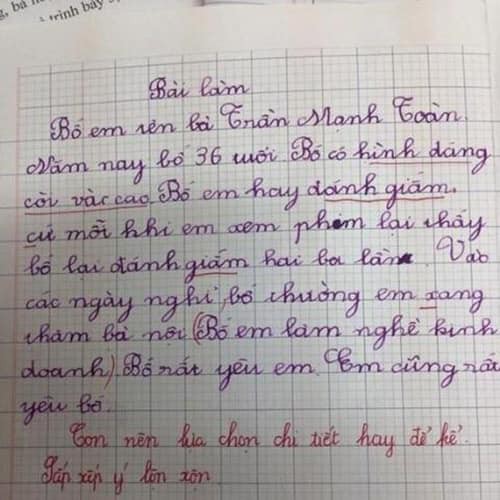 trình bày
Bài làm
Bố em tên là Trần Mạnh Toàn.
Năm nay bố 36 tuổi Bố có hình dáng
còi vàc cao. Bố em hay dánh giấm.
cứ mỗi khi em xem phim lại thấy
bố lại đánh giấm hai ba lần. Vào
các ngày nghỉ, bố thường em xang
thăm bà nội (Bố em làm nghề kinh
doanh). Bố rất yêu em. Em cũng rất
yêu bố.
Con nên lựa chọn chi tiết hay để kể.
Sắp xếp ý lộn xộn